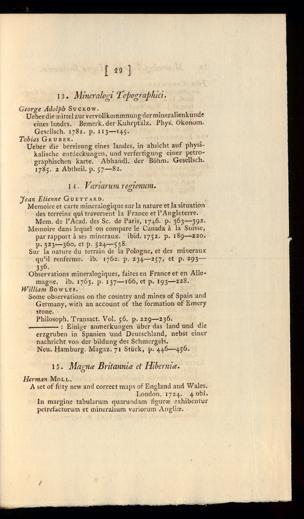 [ 29 ]
13. Mineralogi Topographici.
George Adolph SUCKOW.
Ueber die mittel zur vervollkommnung der mineralienkunde
eines landes. Bemerk. der Kuhrpfälz. Phys. Ökonom.
Gesellsch. 1781. p. 113—145.
Tobias GRUBER.
Ueber die bereisung eines landes, in absicht auf physi-
kalische entdeckungen, und verfertigung einer petro-
graphischen karte. Abhandl. der Böhm. Gesellsch.
1785. 2 Abtheil. p. 57—82.
14. Variarum regionum.
Jean Etienne GUETTARD.
Memoire et carte mineralogique sur la nature et la situation
des terreins qui traversent la France et l'Angleterre.
Mem. de l'Acad. des Sc. de Paris, 1746. p. 363—392.
Memoire dans lequel on compare le Canada à la Suisse,
par rapport à ses mineraux. ibid. 1752. p. 189—220.
p. 323—360, et p. 524—538.
Sur la nature du terrain de la Pologne, et des mineraux
qu'il renferme. ib. 1762. p. 234—257, et p. 293—
336.
Observations mineralogiques, faites en France et en Alle-
magne. ib. 1763. p. 137—166, et p. 193—228.
William BOWLES.
Some observations on the country and mines of Spain and
Germany, with an account of the formation of Emery
stone.
Philosoph. Transact. Vol. 56. p. 229—236.
———— : Einige anmerkungen über das land und die
erzgruben in Spanien und Deutschland, nebst einer
nachricht von der bildung des Schmergels.
Neu. Hamburg. Magaz. 71 Stück, p. 446—456.
15. Magnæ Britanniæ et Hiberniæ.
Herman MOLL.
A set of fifty new and correct maps of England and Wales.
London. 1724. 4 obl.
In margine tabularum quarundam figuræ exhibentur
petrefactorum et mineralium variorum Angliæ.